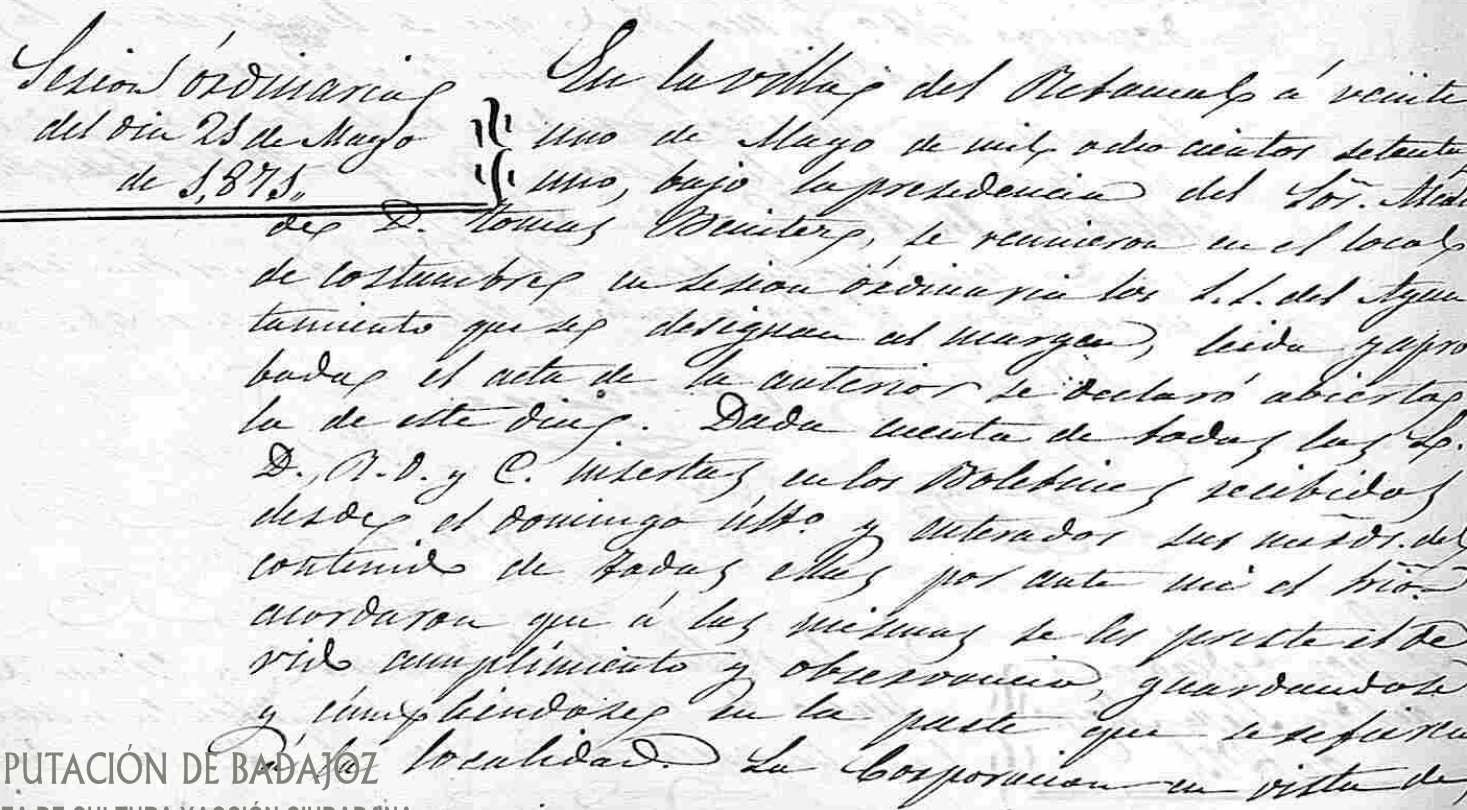 Sesion ordinaria
del dia 21 de Mayo
de 1,871,,
En la villa del Retamal á veinte
uno de Mayo de mil ocho cientos setenta
uno, bajo la presidencia del Sor. Alcal
de D. Tomas Benitez, se reunieron en el local
de costumbre en sesion ordinaria los S.S. del Ayun
tamiento que se designan al margen, leida y apro
bada el acta de la anterior se declaró abierta
la de este dia. Dada cuenta de todas las L.
D., R.O. y C. insertas en los Boletines recibidos
desde el domingo últo. y enterados sus mersds. del
contenido de todas ellas por ante mi el Srio.
acordaron que á las mismas se les preste el de
vido cumplimiento y observancia, guardandose
y cumpliendose en la parte que se refiera
á la localidad. La Corporacion en vista de
PUTACIÓN DE BADAJOZ
TA DE CULTURA Y ACCIÓN CIUDADANA